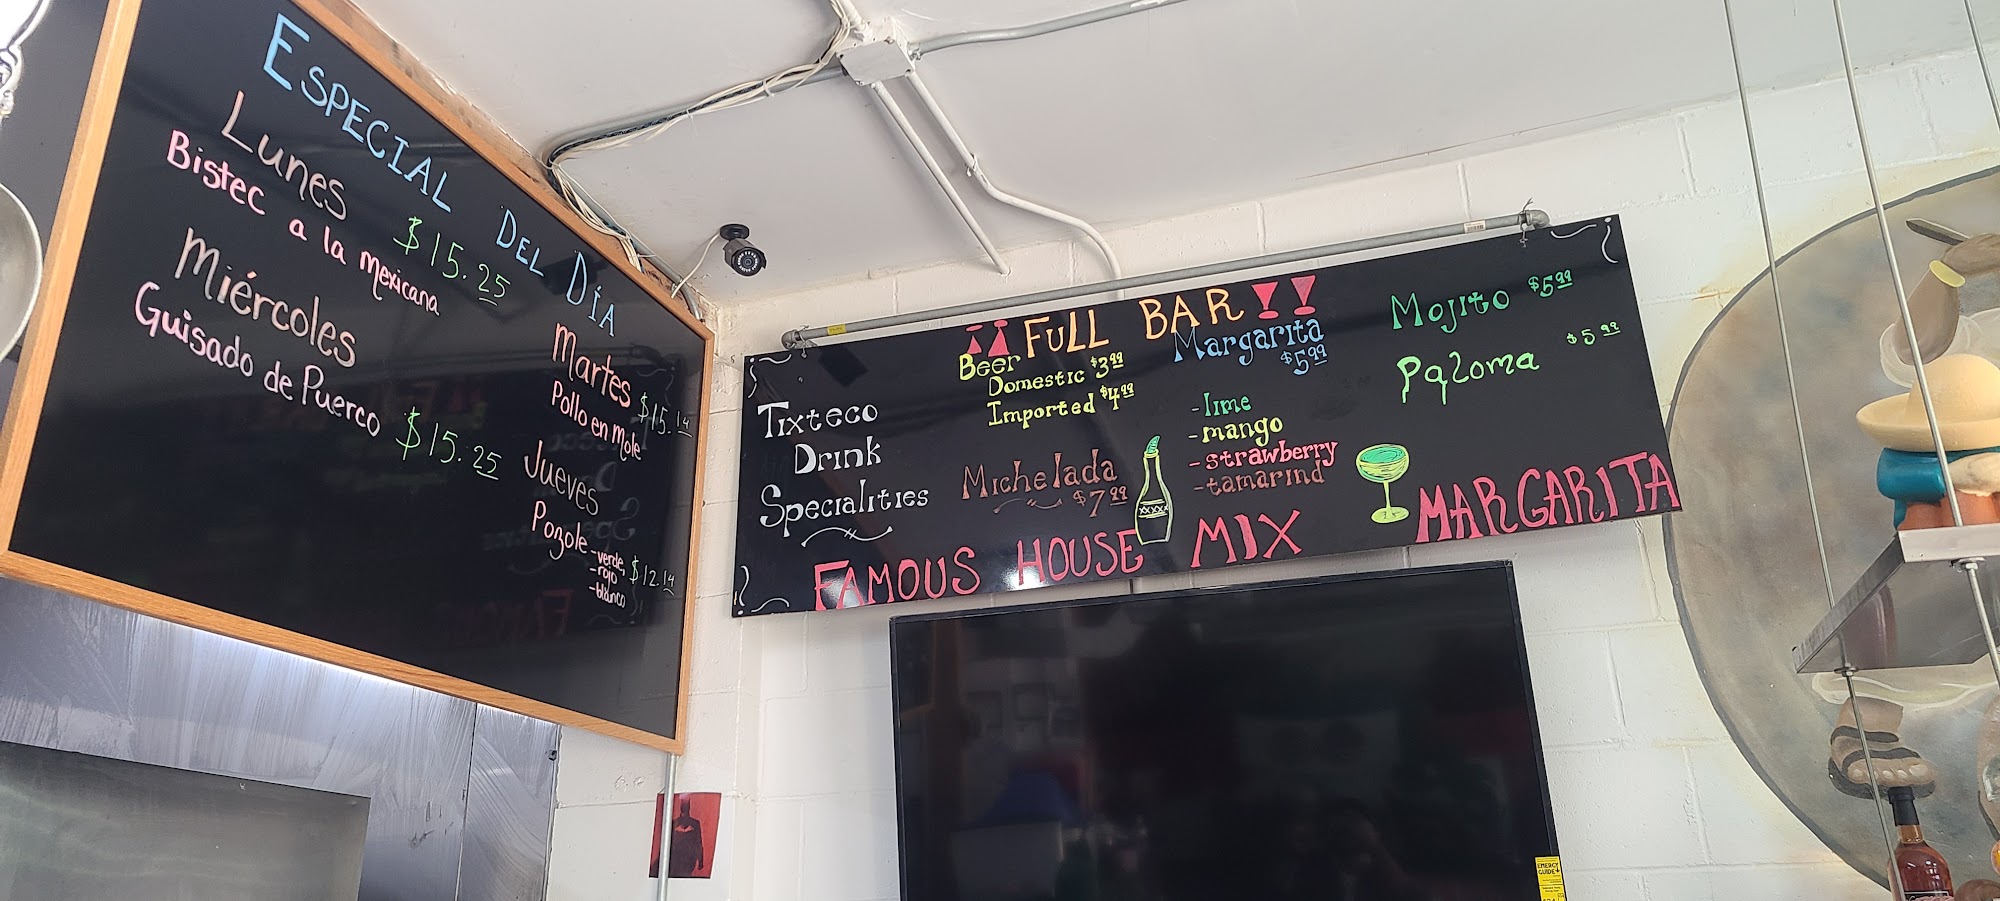 ESPECIAL DEL DÍA
Lunes
Bistec a la mexicana
$15.25
Miércoles
Guisado de Puerco
$15.25
Martes
$15.14
Pollo en mole
Jueves
Pozole
-verde,
-rojo
-blanco
$12.14
¡¡ FULL BAR!!
Tixteco
Drink
Specialities
Beer
Domestic $3.99
Imported $4.99
Michelada
$7.99
Margarita
$5.99
-lime
-mango
-strawberry
-tamarind
Mojito $5.99
Paloma $5.99
XXXX
FAMOUS HOUSE MIX MARGARITA
ENERGY
GUIDE